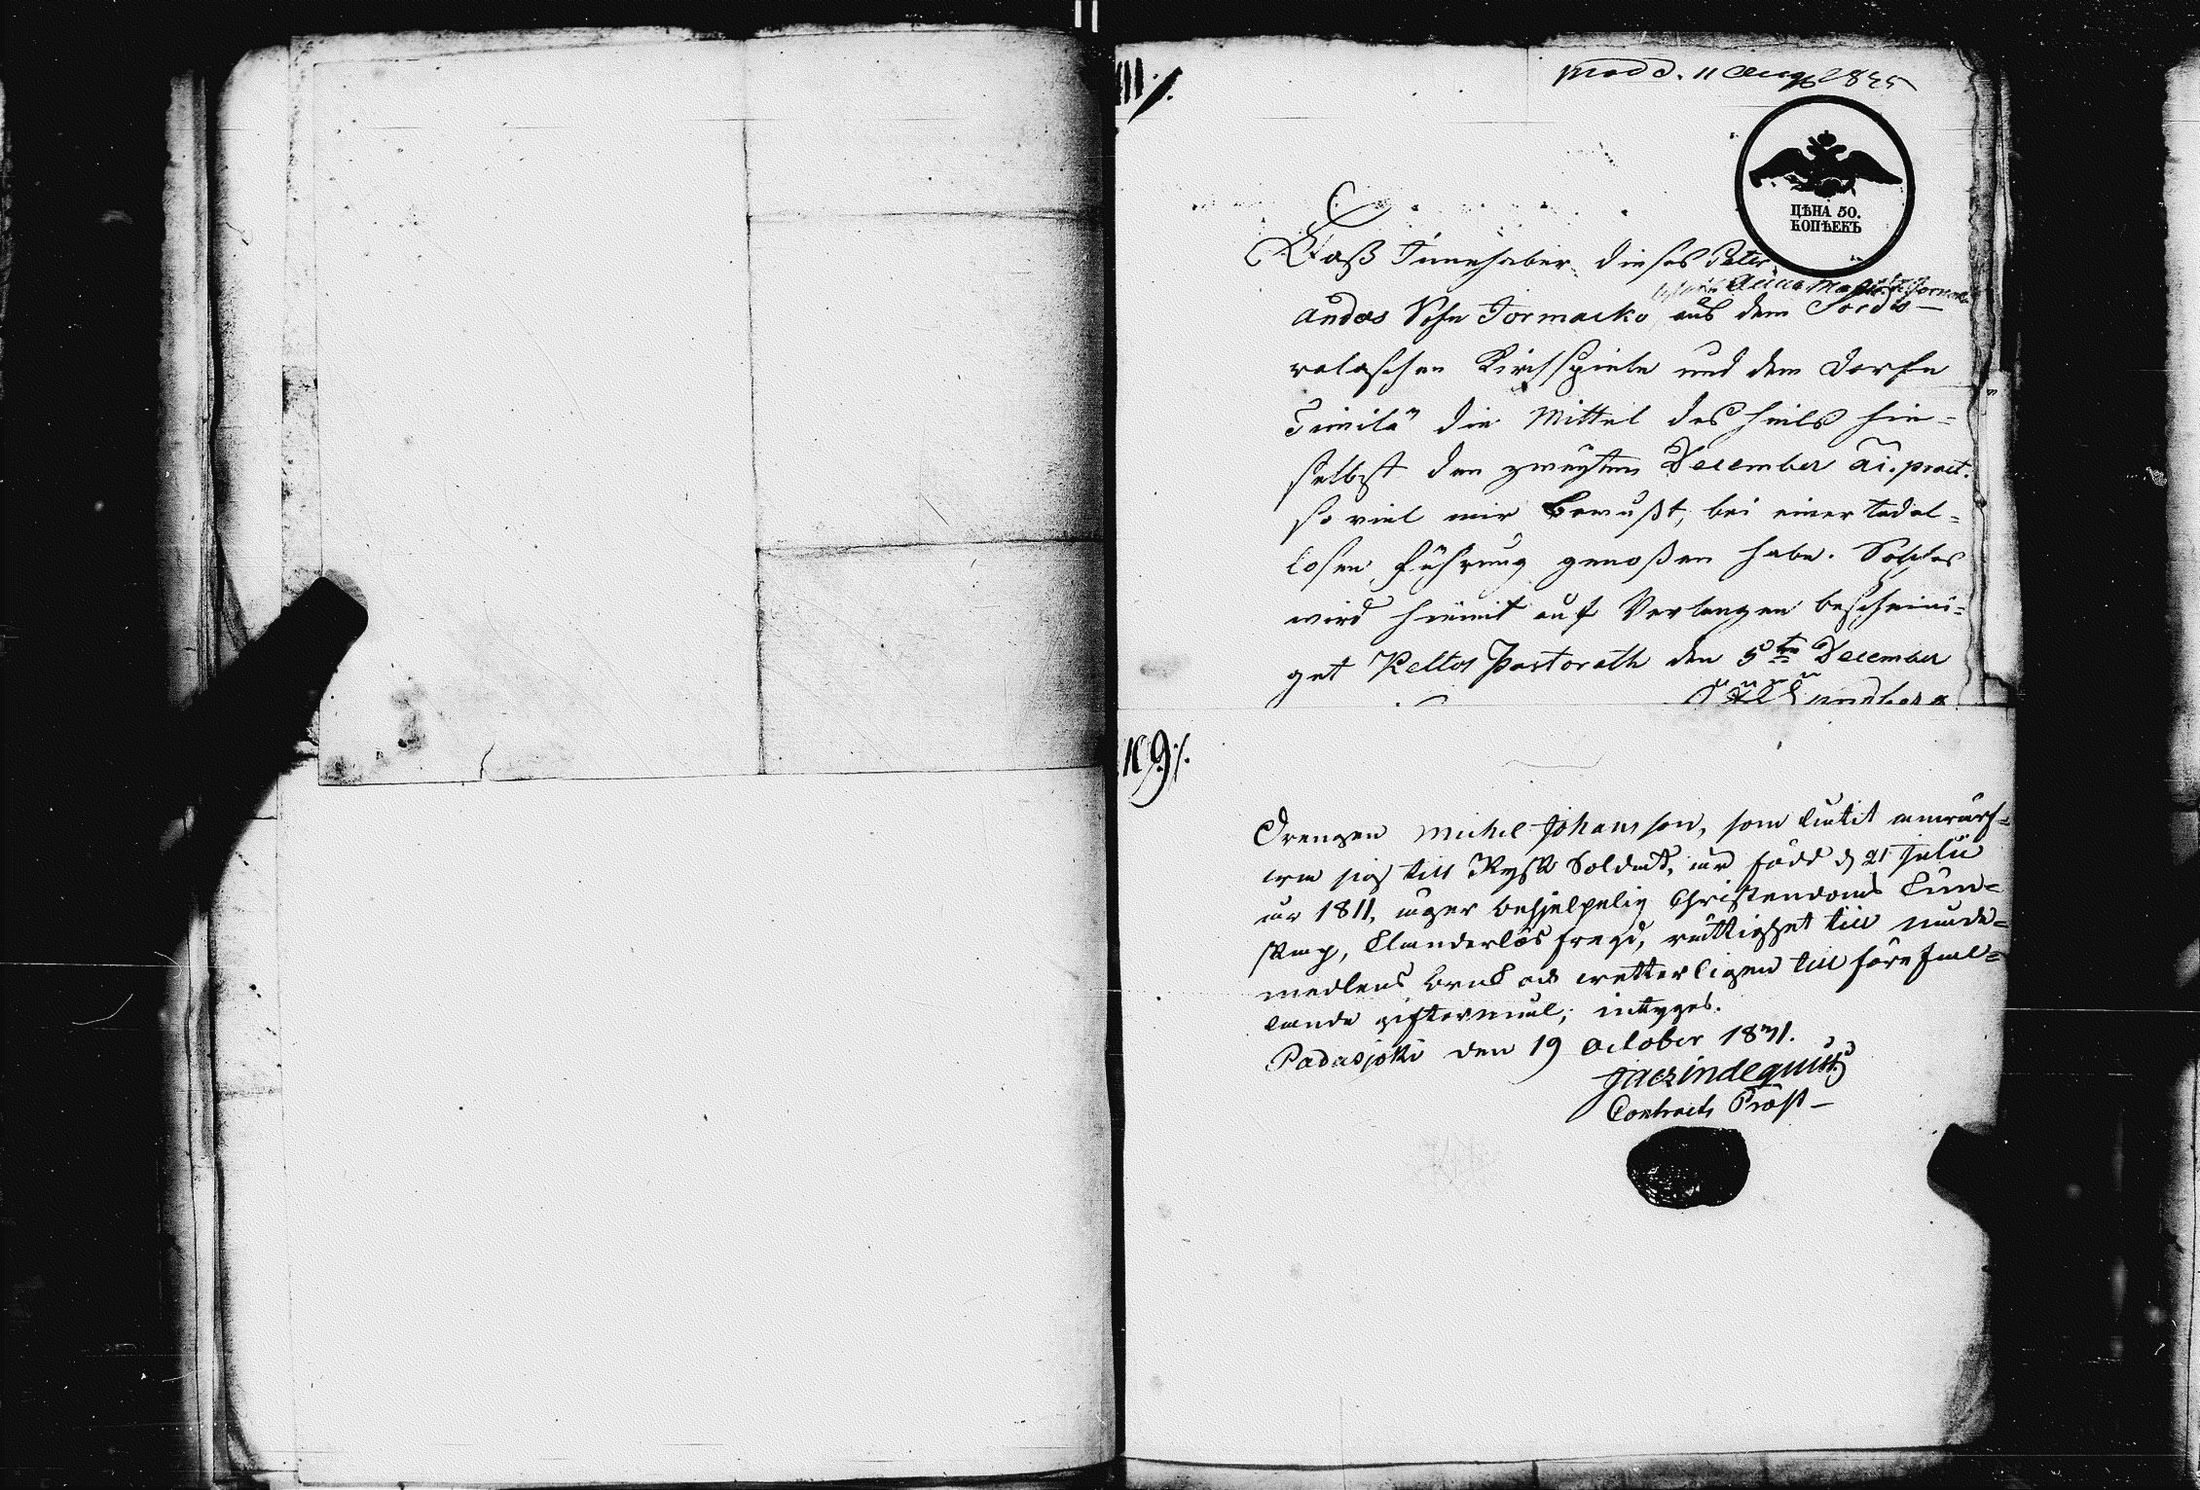 prod d. 11 Aug 1835
ЦѢНА 50.
КОПѢЕКЪ
Daß Innehaber dieses Peter
Anna
Andas Sohn Tormacko aus dem
rolaschen Kirchspiele und dem Dorfe
die Mittel des Heils hie=
selbst den zweyten December ai. praet.
so viel mir bewußt, bei einer tadel=
losen Führung genoßen habe. Solches
wird hiemit auf Verlangen bescheini=
get Keltos Pastorath den 5ten December
109/.
Drengen Michel Johansson, som lutit
sig till Rysk Soldat, är född d 21 Julii
år 1811, äger behjelpelig Christendoms kun=
skap, klanderlös fregd, rättighet till nåde=
medlens bruk och till förefal=
lande giftermål; intygas.
Padasjoki den 19 October 1831.
Contracts Prost